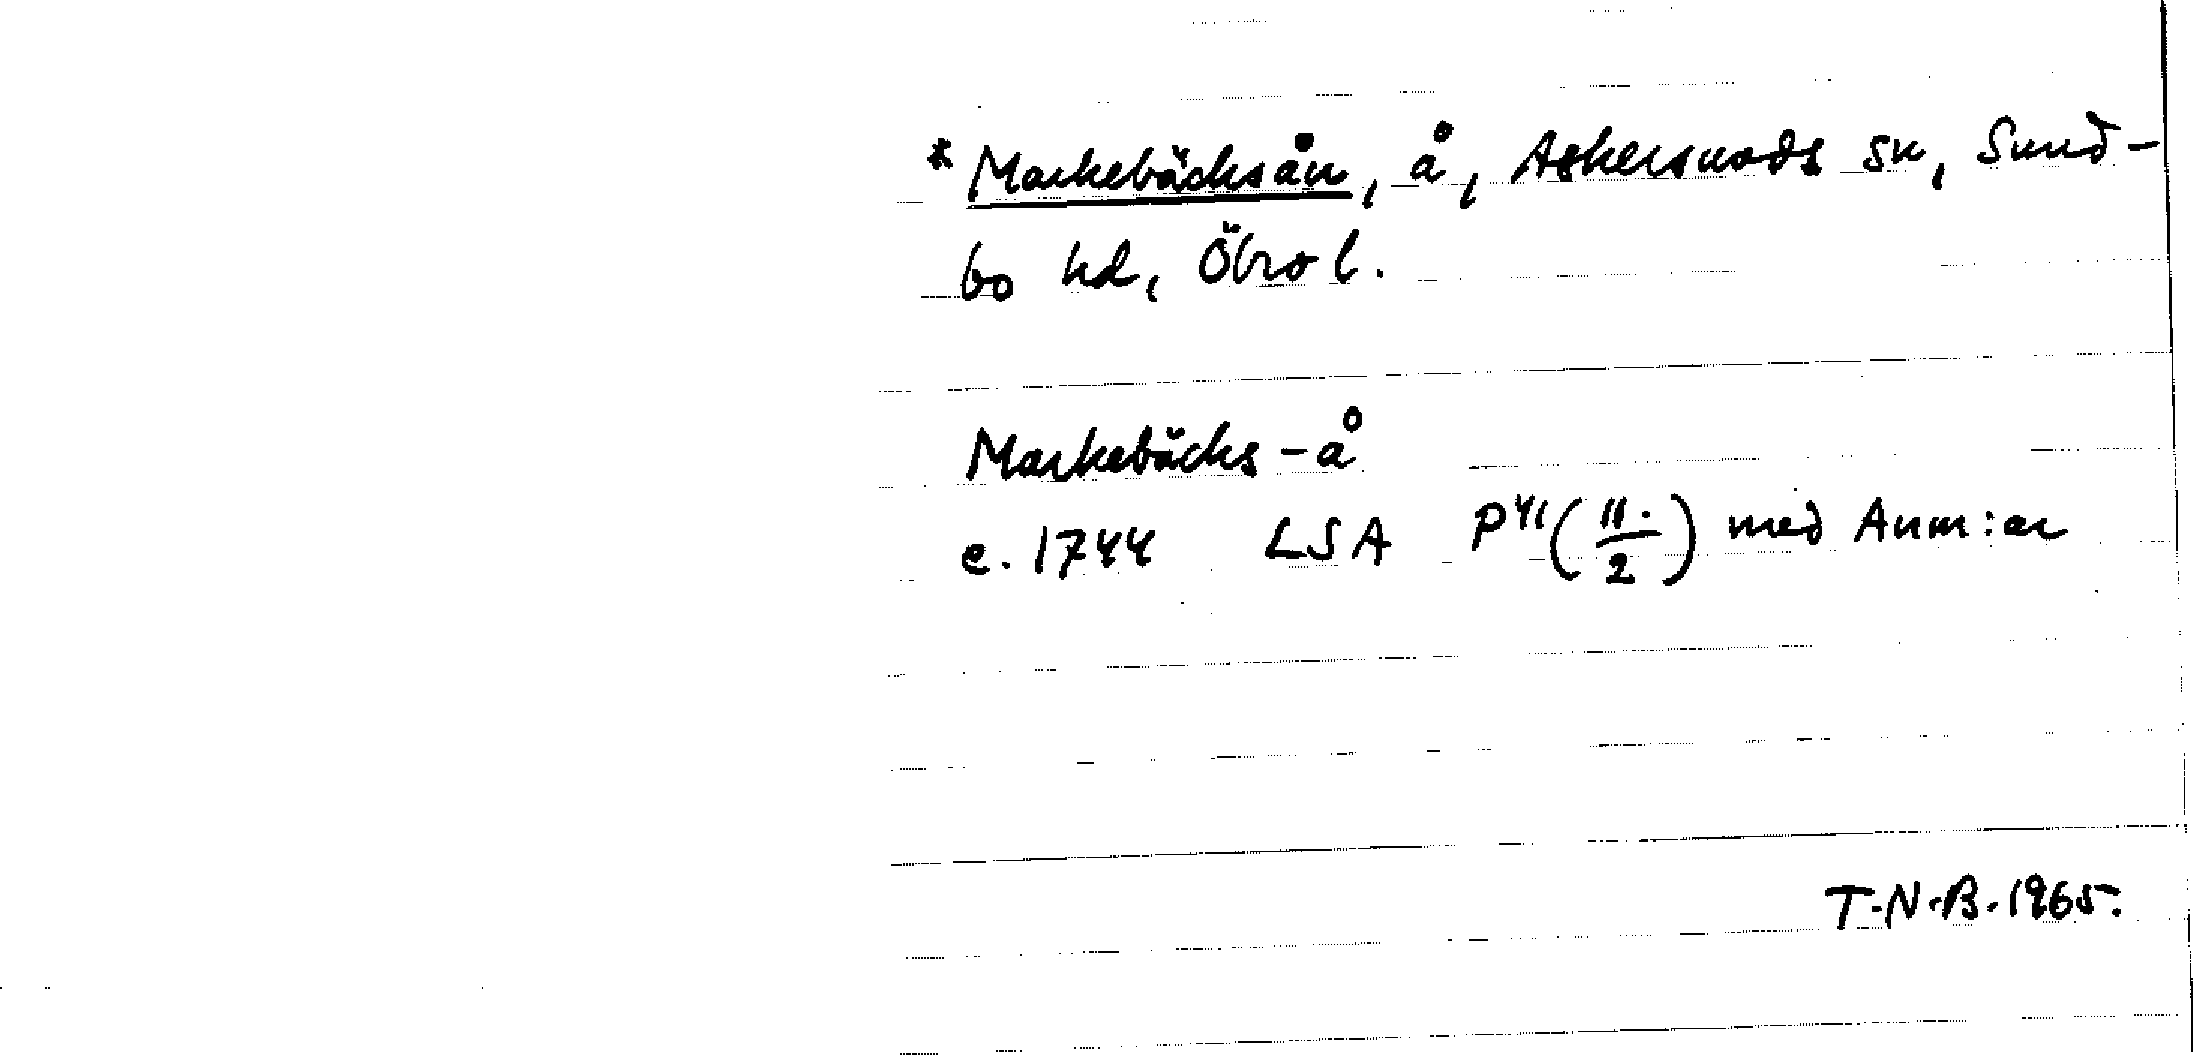 * Markebäcksån, å, Askersunds sn, Sund-
bo hd, Öbro l.
Markebäcks-å
e. 1744 LSA P41(11./2) med Anm:ar
T.N.B. 1965.